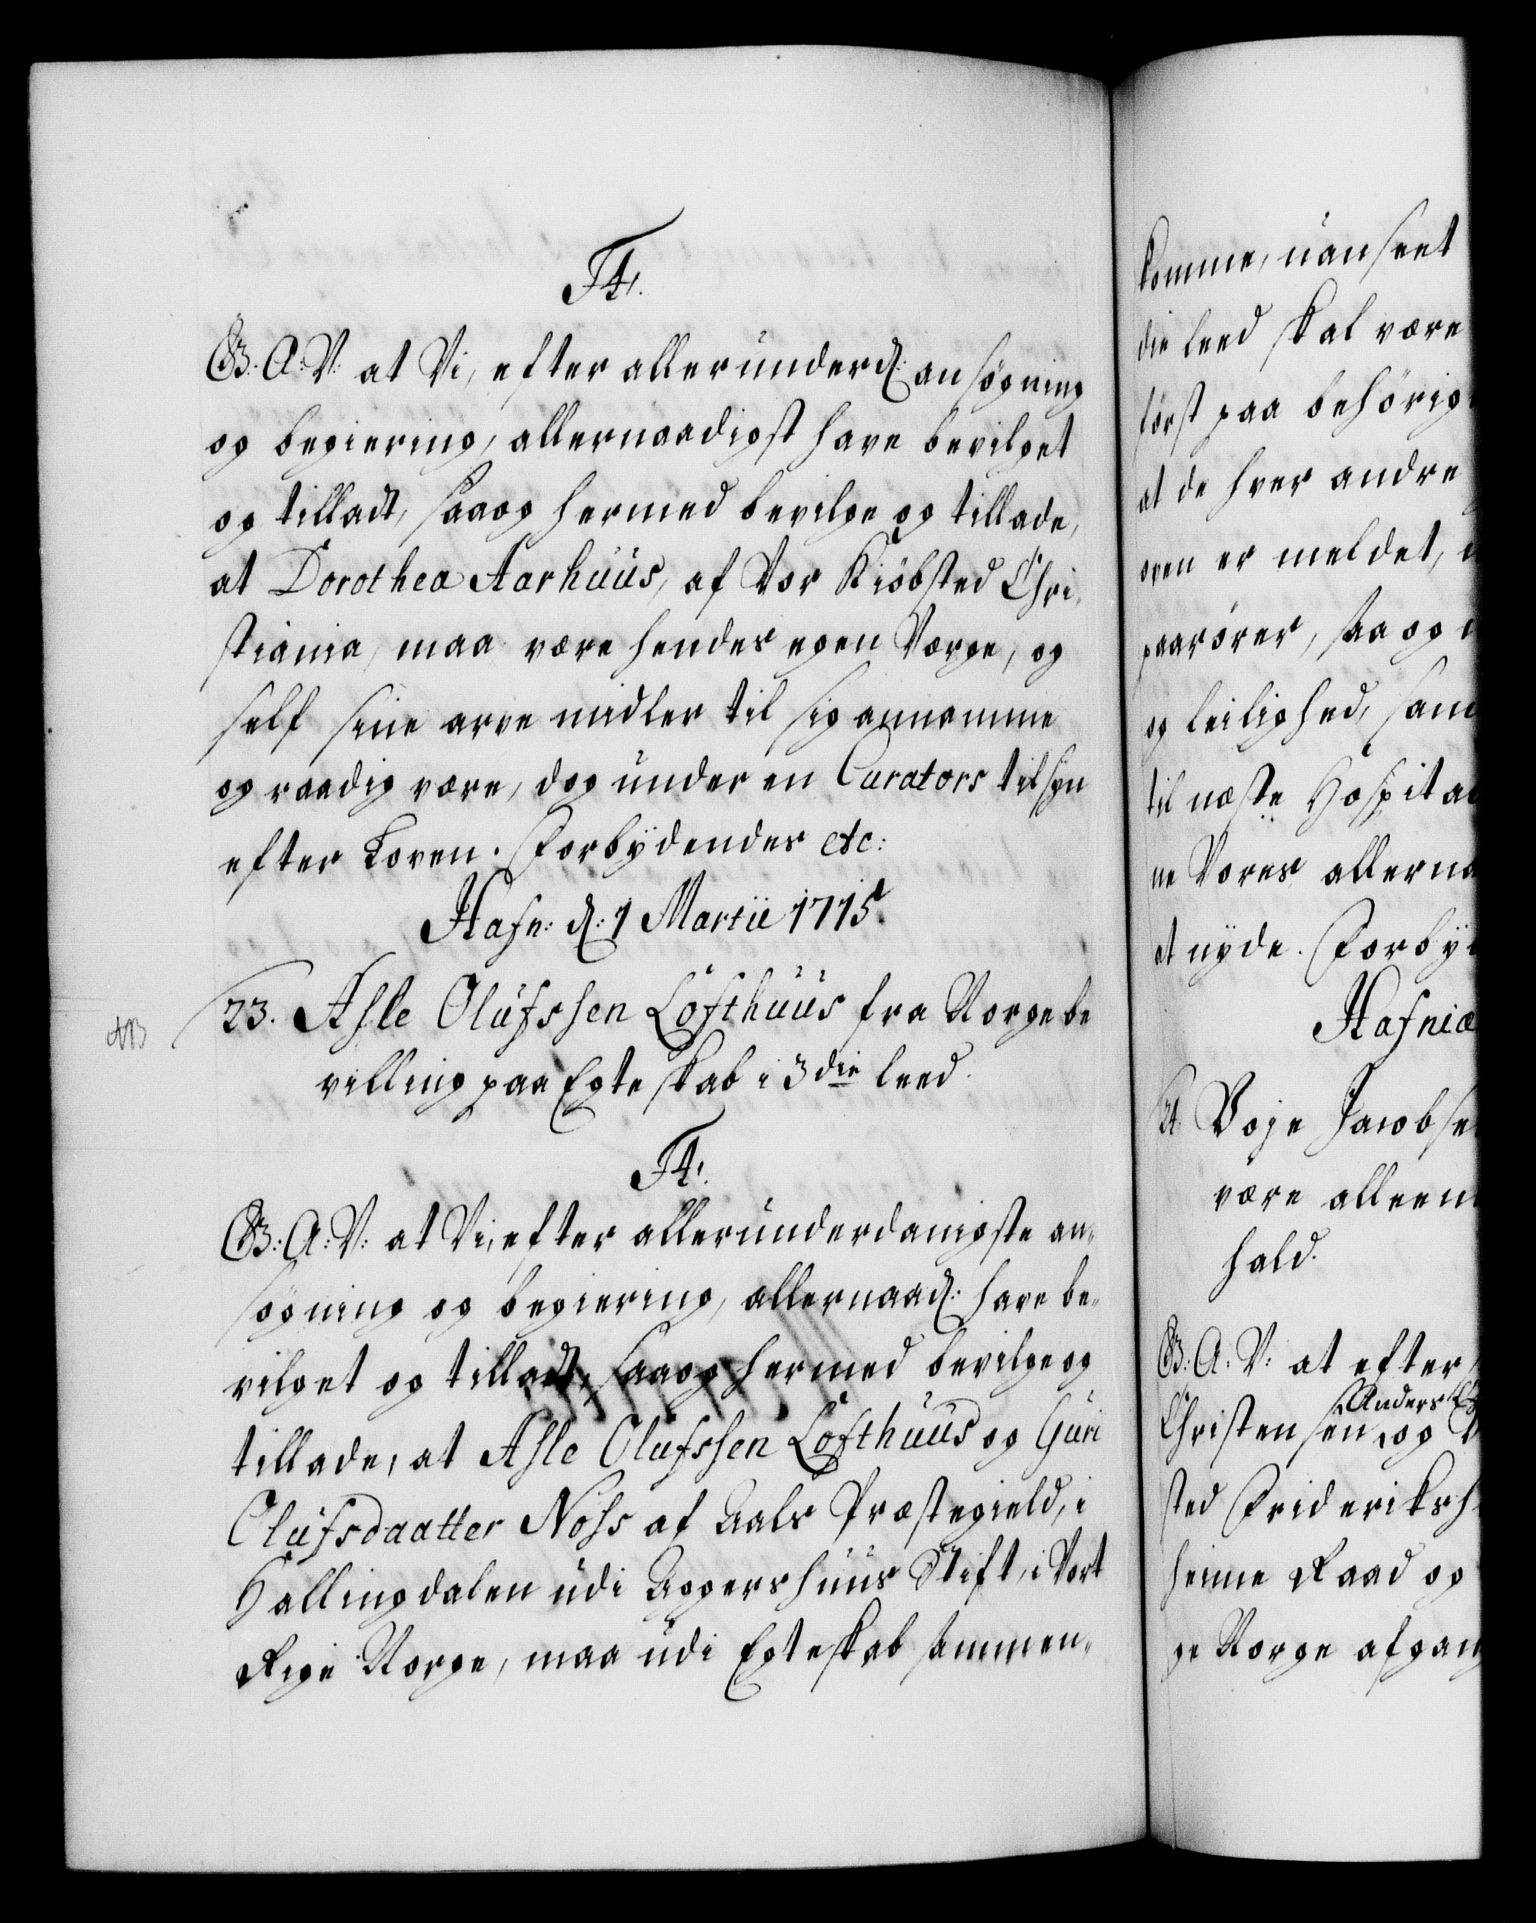 F4.
G: A: V: at Vi, efter allerunderd: ansøgning
og begiering, allernaadigst have bevilget
og tilladt, saaog hermed bevilge og tillade,
at Dorothea Aarhuus, af Vor Kiøbsted Chri-
stiania, maa være hendes egen Værge, og
self sine arve midler til sig annamme
og raadig være, dog under en Curators tilsyn
efter Loven. Forbydendes etc:
Hafn: d: 1 Martii 1715.
NB
23. Asle Olufssen Lofthuus fra Norge be
villing paa Egteskab i 3die leed.
F4.
G: A: V: at Vi, efter allerunderdanigste an-
søgning og begiering, allernaad: have be-
vilget og tilladt, saaog hermed bevilge og
tillade, at Asle Olufssen Lofthuus og Guri
Olufsdaatter Noss af Aals Præstegield, i
Hallingdalen udi Aggershuus Stift, i Vort
Rige Norge, maa udi Egteskab sammen-
komme, uanseet
die leed skal være
først paa behørig
at de hver andre
oven er meldet,
paarører, saa og
og leilighed, sam
til næste Hospital
ne Vores allerna
et nyde. Forby
Hafniæ
24. Boje Jacobse
være alleen
hald.
G: A: V: at efter
Anders
Christensen, og
sted Friderikshald
henne Raad og
ge Norge afgang